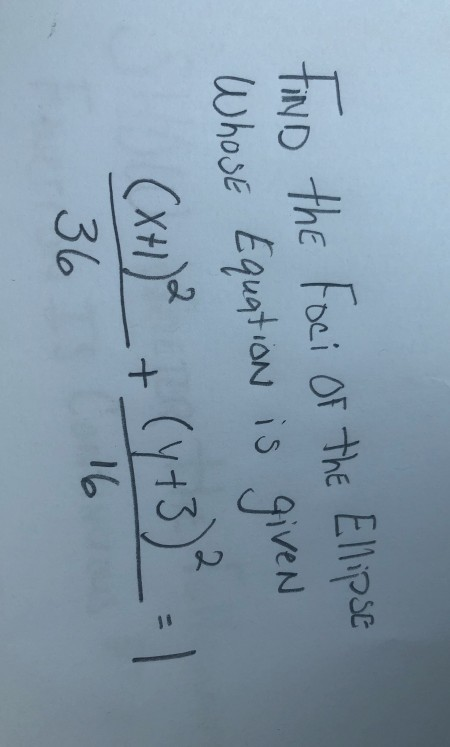 FiND the Foci OF the Ellipse
Whose Equation is given
(x+1)² / 36 + (y+3)² / 16 = 1